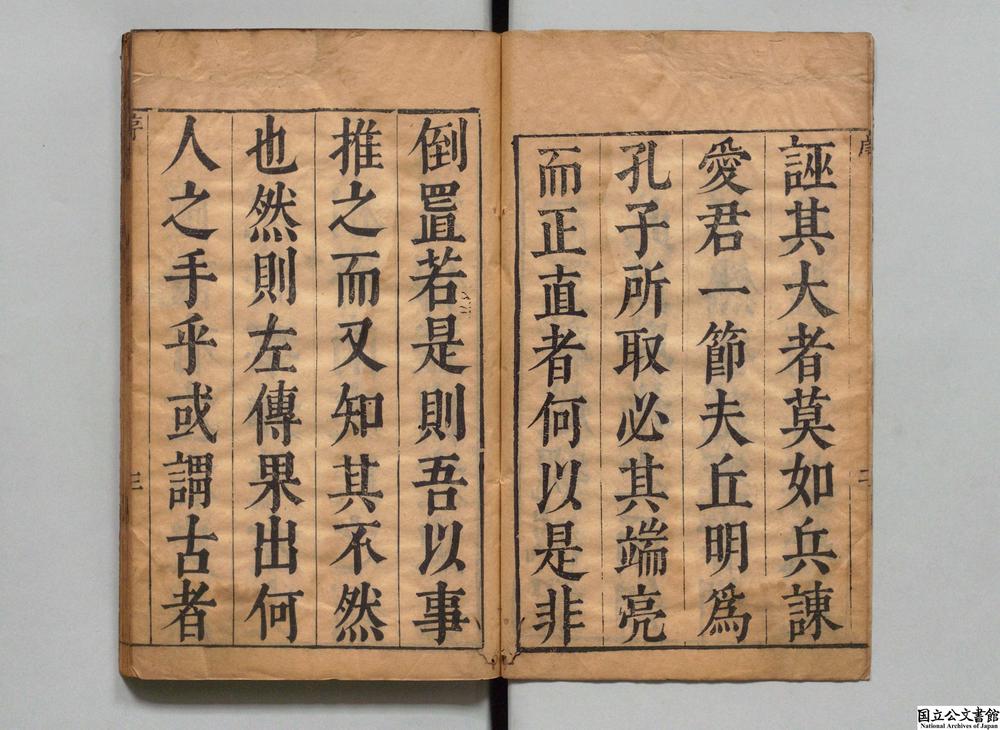 誣其大者莫如兵諫
愛君一節夫丘明爲
孔子所取必其端亮
而正直者何以是非
倒置若是則吾以事
推之而又知其不然
也然則左傳果出何
人之手乎或謂古者
序
三
国立公文書館
National Archives of Japan